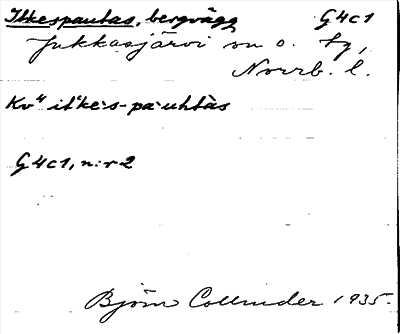 Itkespautas, bergvägg G4c1
Jukkasjärvi sn o. tg,
Norrb. l.
Kv" it'ke:s-pa·uhtàs
G4c1, n:r 2
Björn Collinder 1935.